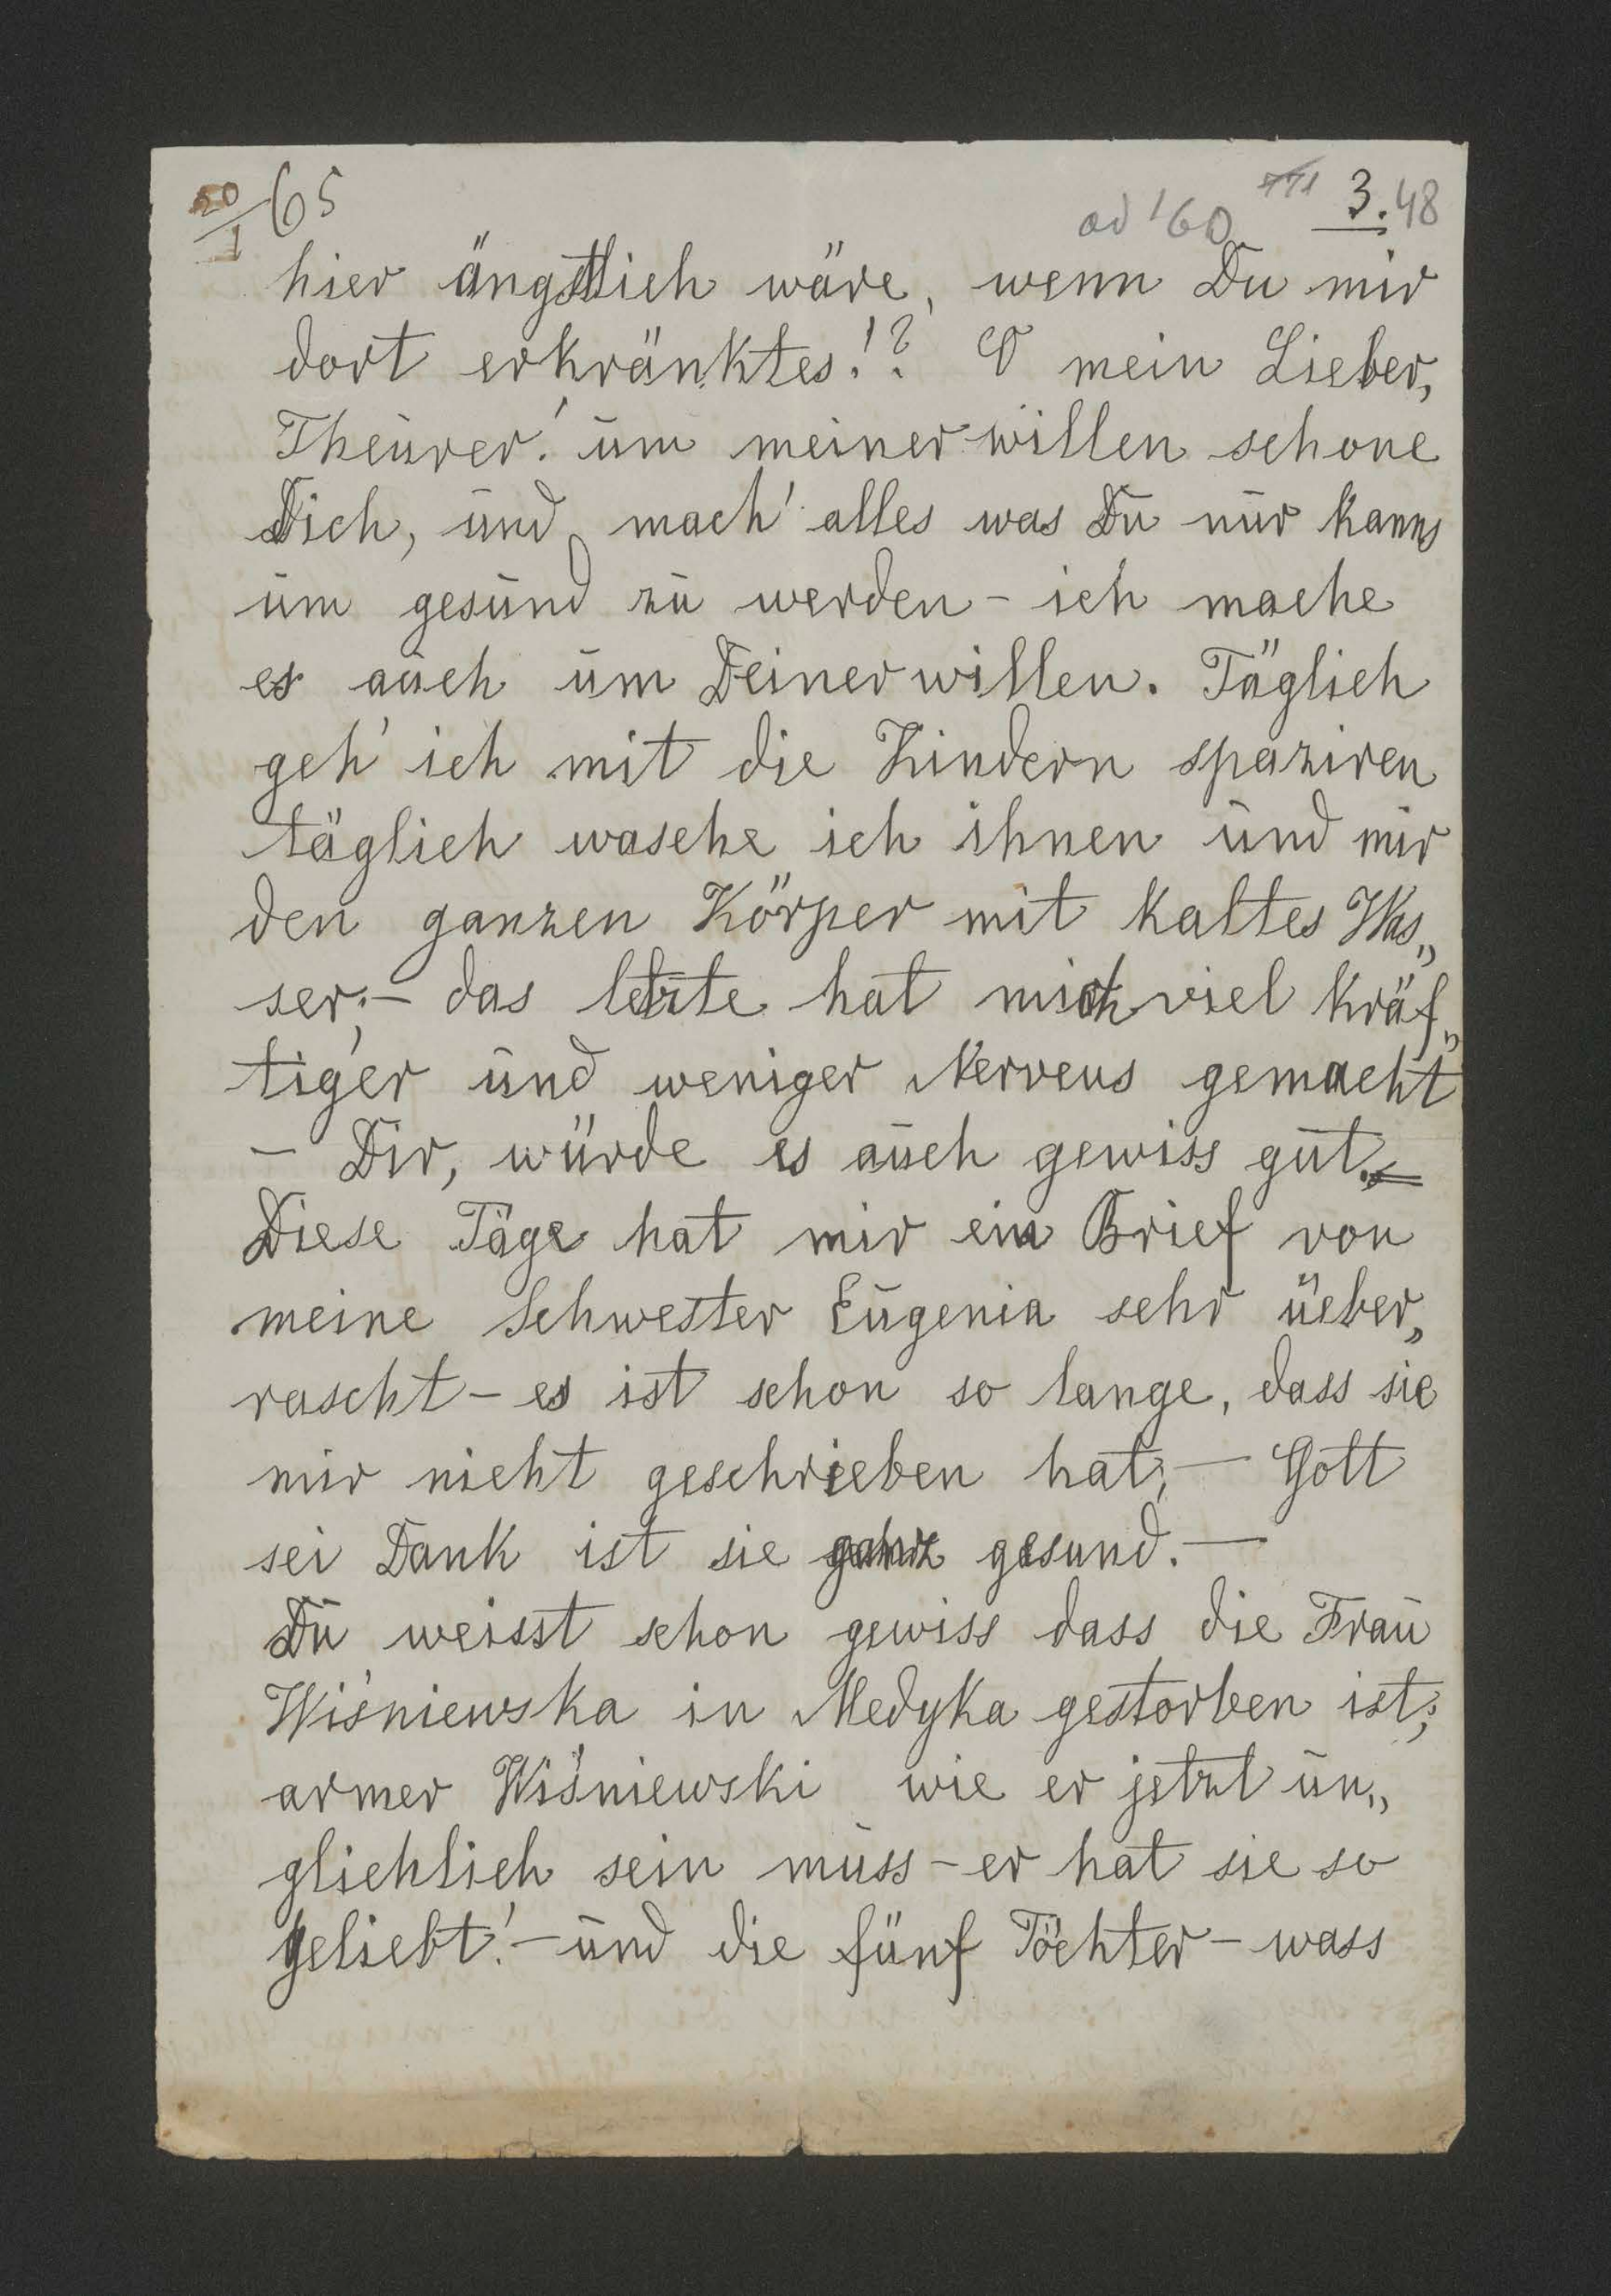 20/1 65
ad '60 771 3. 48
hier ängstlich wäre, wenn Du mir
dort erkränktes!? O mein Lieber,
Theurer! um meiner willen schone
Dich, und mach' alles was Du nur kanns
um gesund zu werden – ich mache
es auch um Deiner willen. Täglich
geh' ich mit die Kindern spaziren
täglich wasche ich ihnen und mir
den ganzen Körper mit kaltes Was„
ser;– das letzte hat mich viel kräf„
tiger und weniger Nerveus gemacht
– Dir, würde es auch gewiss gut.–
Diese Täge hat mir ein Brief von
meine Schwester Eugenia sehr üeber„
rascht – es ist schon so lange, dass sie
mir nicht geschrieben hat;– Gott
sei Dank ist sie ganz gesund.–
Du weisst schon gewiss dass die Frau
Wiśniewska in Medyka gestorben ist;
armer Wiśniewski wie er jetzt un„
glichlich sein muss – er hat sie so
geliebt!– und die fünf Töchter – wass